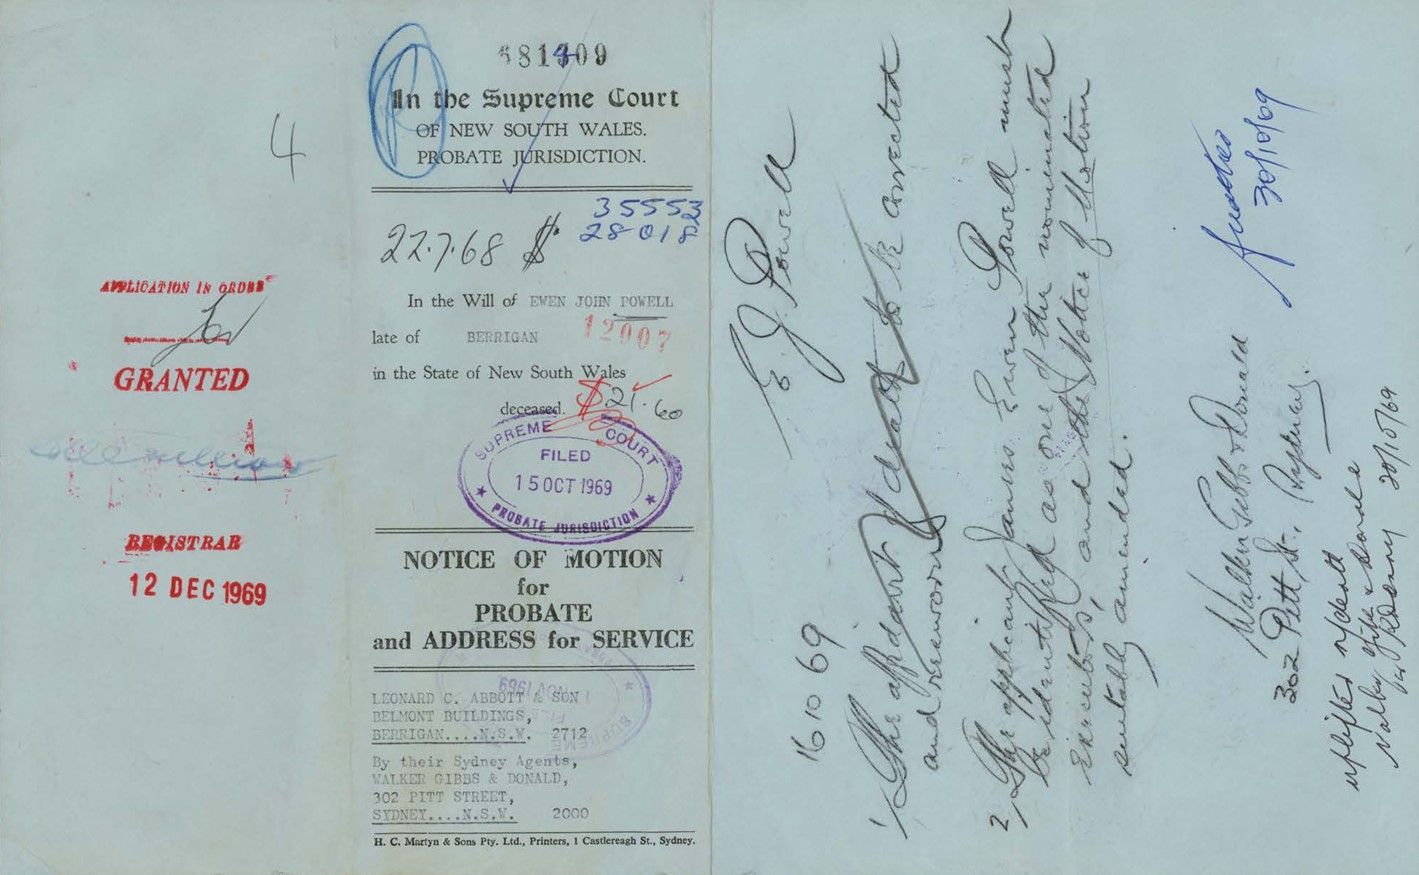 4
APPLICATION IN ORDER
GRANTED
REGISTRAR
12 DEC 1969
681409
In the Supreme Court
OF NEW SOUTH WALES.
PROBATE JURISDICTION.
35553
28018
22.7.68 $
In the Will of EWEN JOHN POWELL
12007
late of BERRIGAN
in the State of New South Wales
deceased.
$21.60
SUPREME COURT
FILED
15 OCT 1969
PROBATE JURISDICTION
NOTICE OF MOTION
for
PROBATE
and ADDRESS for SERVICE
LEONARD C. ABBOTT & SON
BELMONT BUILDINGS,
BERRIGAN....N.S.W. 2712
By their Sydney Agents,
WALKER GIBBS & DONALD,
302 PITT STREET,
SYDNEY....N.S.W. 2000
H. C. Martyn & Sons Pty. Ltd., Printers, 1 Castlereagh St., Sydney.
E. J. Powell
16 10 69
1/ The affidavit of death to be corrected
and resworn
2/ The applicant James Ewen Powell must
be identified as one of the nominated
executors, and the Notice of Motion
suitably amended.
30/10/69
Walker Gibbs & Donald
302 Pitt St., Sydney.
uplifted
30/10/69